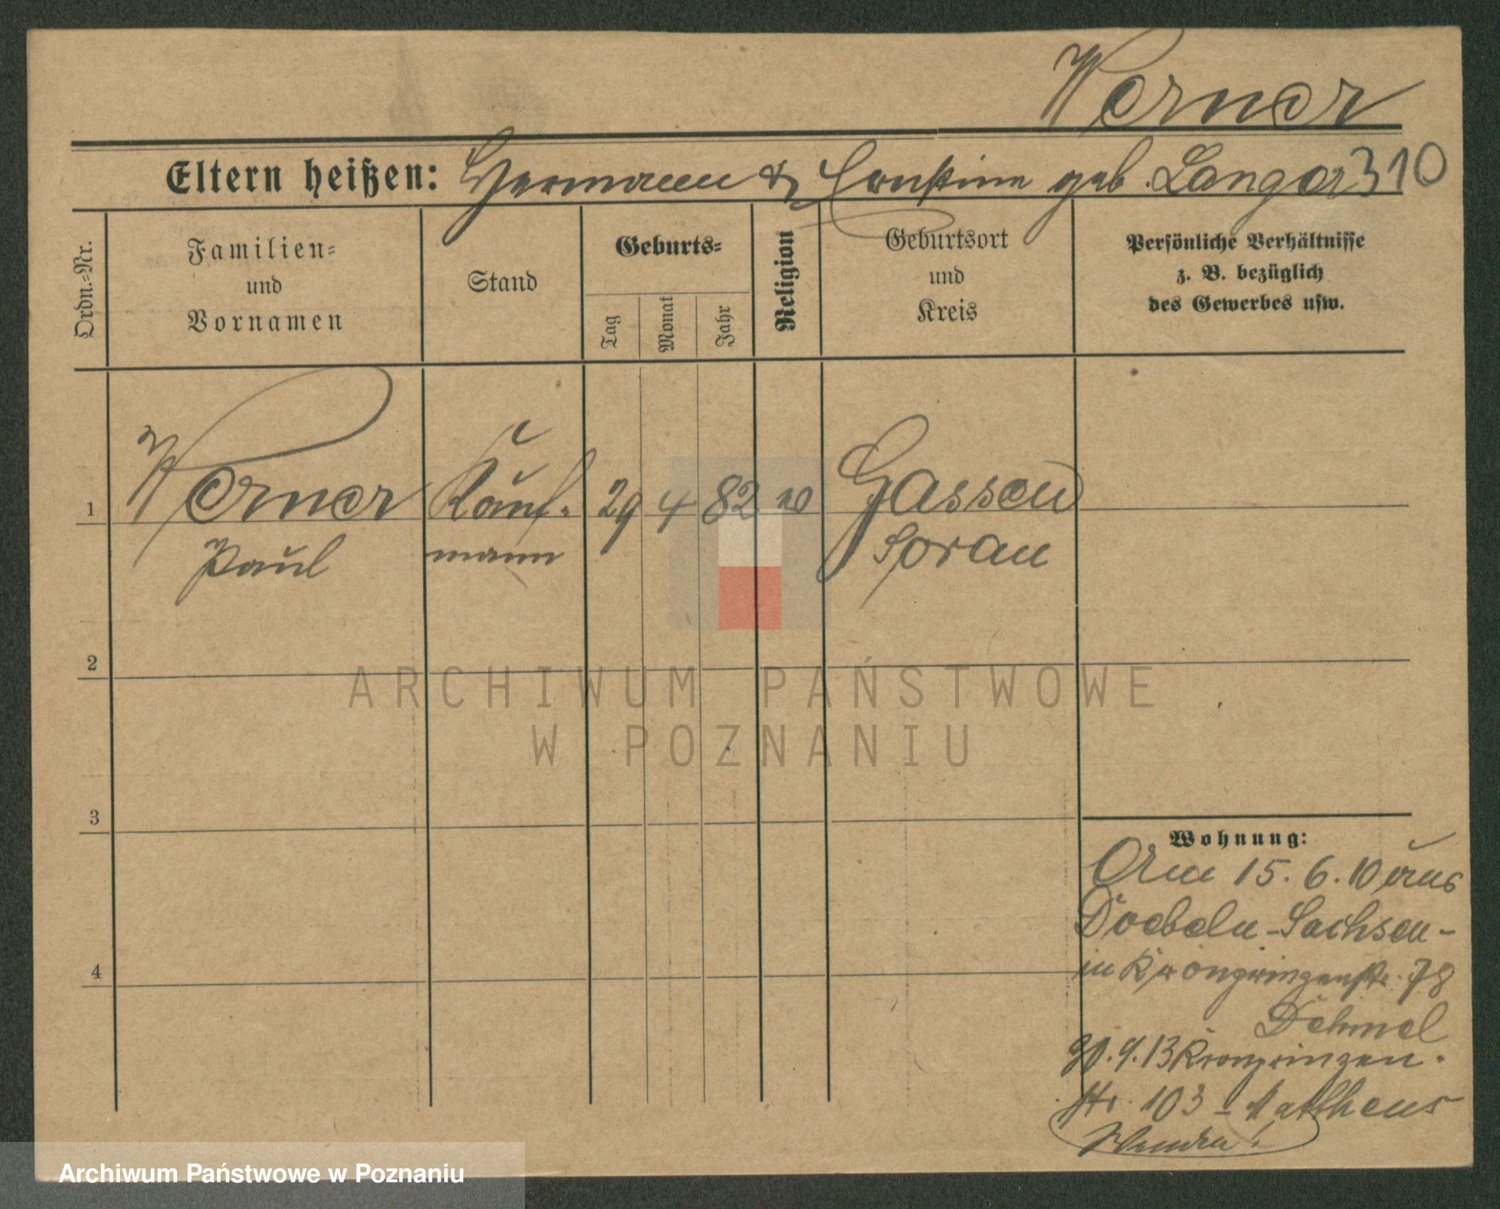 Werner
Eltern heißen: Hermann & Ernstine geb. Langer 310
Ordn.=Nr.
Familien=
und
Vornamen
Stand
Geburts=
Tag
Monat
Jahr
Religion
Geburtsort
und
Kreis
Persönliche Verhältnisse
z. B. bezüglich
des Gewerbes usw.
1 Werner Kauf- 29 4 82 Gassen
Paul mann Sorau
2
ARCHIWUM PAŃSTWOWE
W POZNANIU
3
4
Wohnung:
Am 15. 6. 10 aus
Doebeln - Sachsen -
in Kronprinzenstr. 78
Dehmel
9. 13 Kronprinzen-
str. 103 - Mattheus
Archiwum Państwowe w Poznaniu